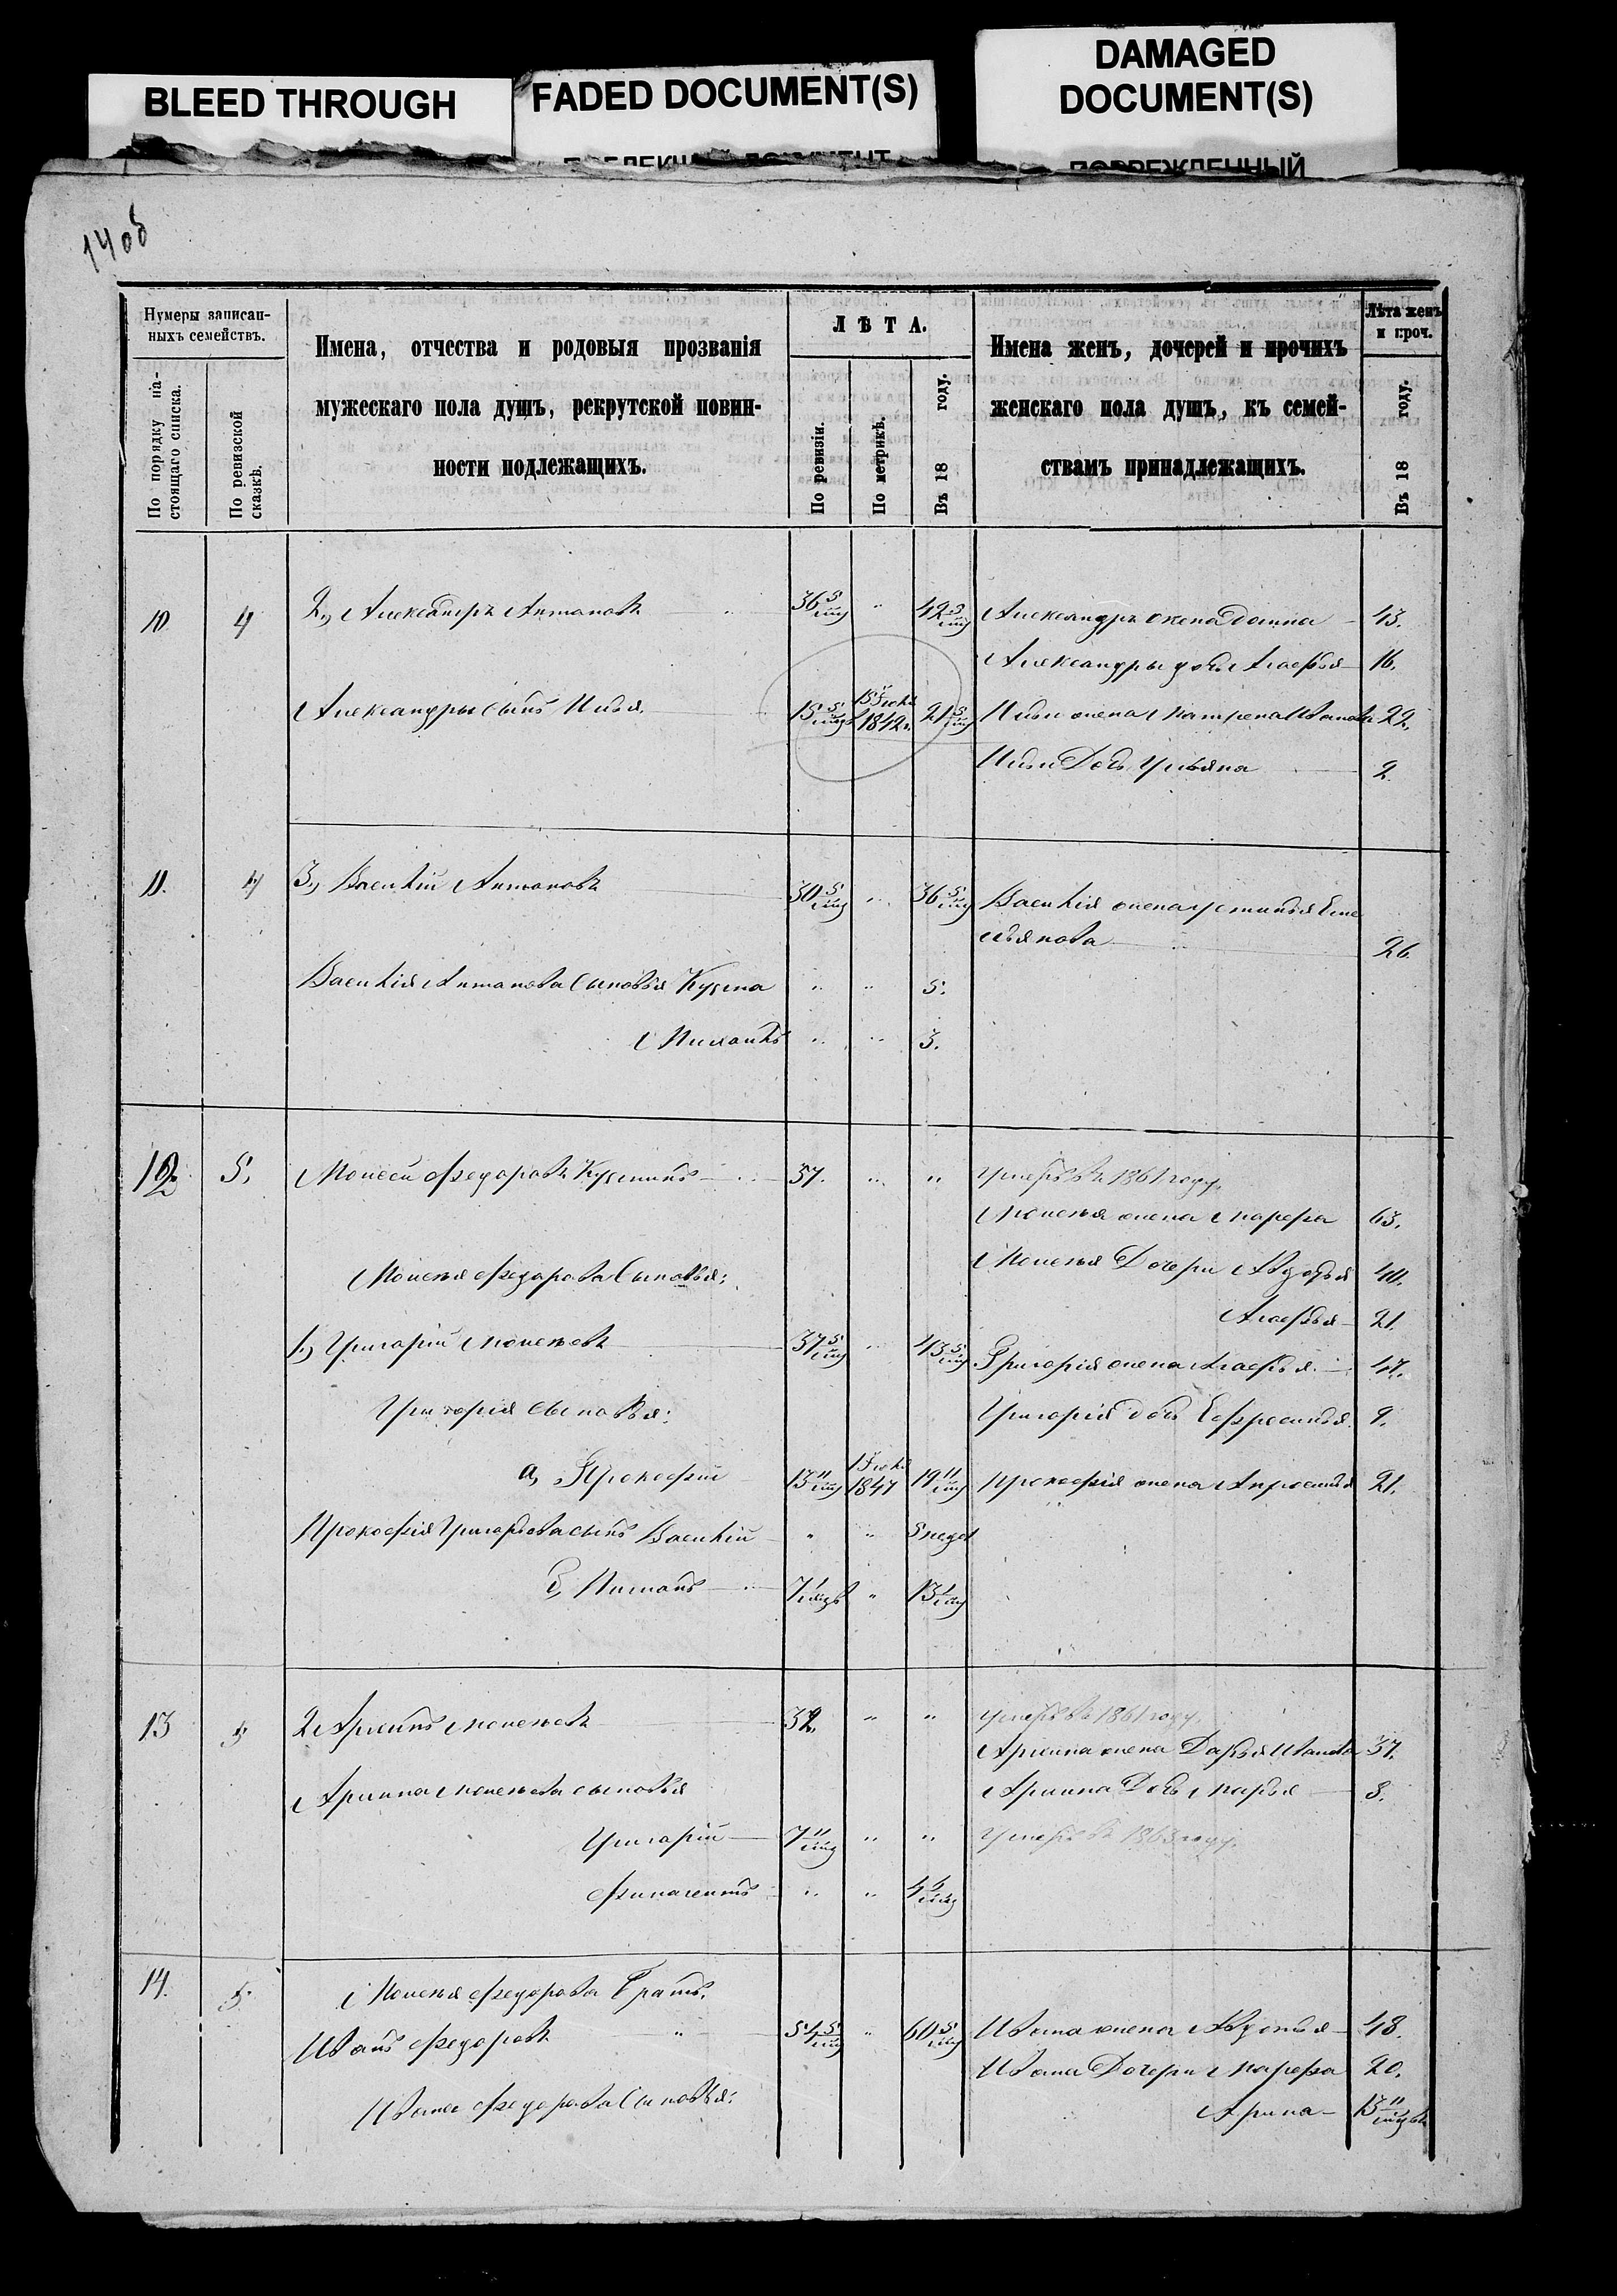 BLEED THROUGH
FADED DOCUMENT(S)
DAMAGED
DOCUMENT(S)
ПОВРЕЖДЕННЫЙ
14об
Нумеры записан-
ныхъ семействъ.
По порядку на-
стоящаго списка.
По ревизской
сказкѣ.
Имена, отчества и родовыя прозванія
мужескаго пола душъ, рекрутской повин-
ности подлежащихъ.
ЛѢТА.
По ревизіи.
По метрикѣ.
Въ 18 году.
Имена женъ, дочерей и прочихъ
женскаго пола душъ, къ семей-
ствамъ принадлежащихъ.
Лѣта женъ
и проч.
Въ 18 году.
10 4 2, Александръ Антоновъ 36 5/мц " 42 5/мц Александра жена Домна 43.
Александры дочь Агафья 16.
Александры сынъ Илья. 15 5/мцъ 1842 г. 21 5/мц Ильи жена Матрена Иванова 22.
Ильи дочь Ульяна 2
11. 4 3, Василій Антоновъ 30 5/мц " 36 5/мц Василія жена Устинья Еме
льянова 26.
Василія Антонова сыновья Кузма " " 5.
Михаилъ " " 3.
12 5. Моисей Федоровъ Кузминъ 57. " " Умеръ въ 1861 году.
Моисея жена Марфа 63.
Моисея Федорова сыновья: Моисея дочери Авдотья 40.
Агафья 21.
1, Григорій Моисеевъ 37 5/мц " 43 5/мц Григорія жена Агафья 47.
Григорія сыновья: Григорія дочь Ефросинья 9.
а, Прокофій 13 11/мц 1847 19 11/мц Прокофія жена Апросинья 21.
Прокофія Григорьева сынъ Василій " " 5 недел
б, Никонъ 7 1/мцъ " 13 1/мц
13 5 2 Архипъ Моисеевъ 32. " " Умеръ въ 1861 году.
Архипа жена Дарья Иванова 37.
Архипа Моисеева сыновья Архипа дочь Марья 8.
Григорій 7 11/мц " " Умеръ въ 1863 году.
" " 4
14. 5. Моисея Федорова братъ.
Иванъ Федоровъ " 54 5/мц " 60 5/мц Ивана жена Авдотья 48.
Ивана дочери Марфа 20.
Ивана Федорова сыновья: Арина 13 11/мцвъ